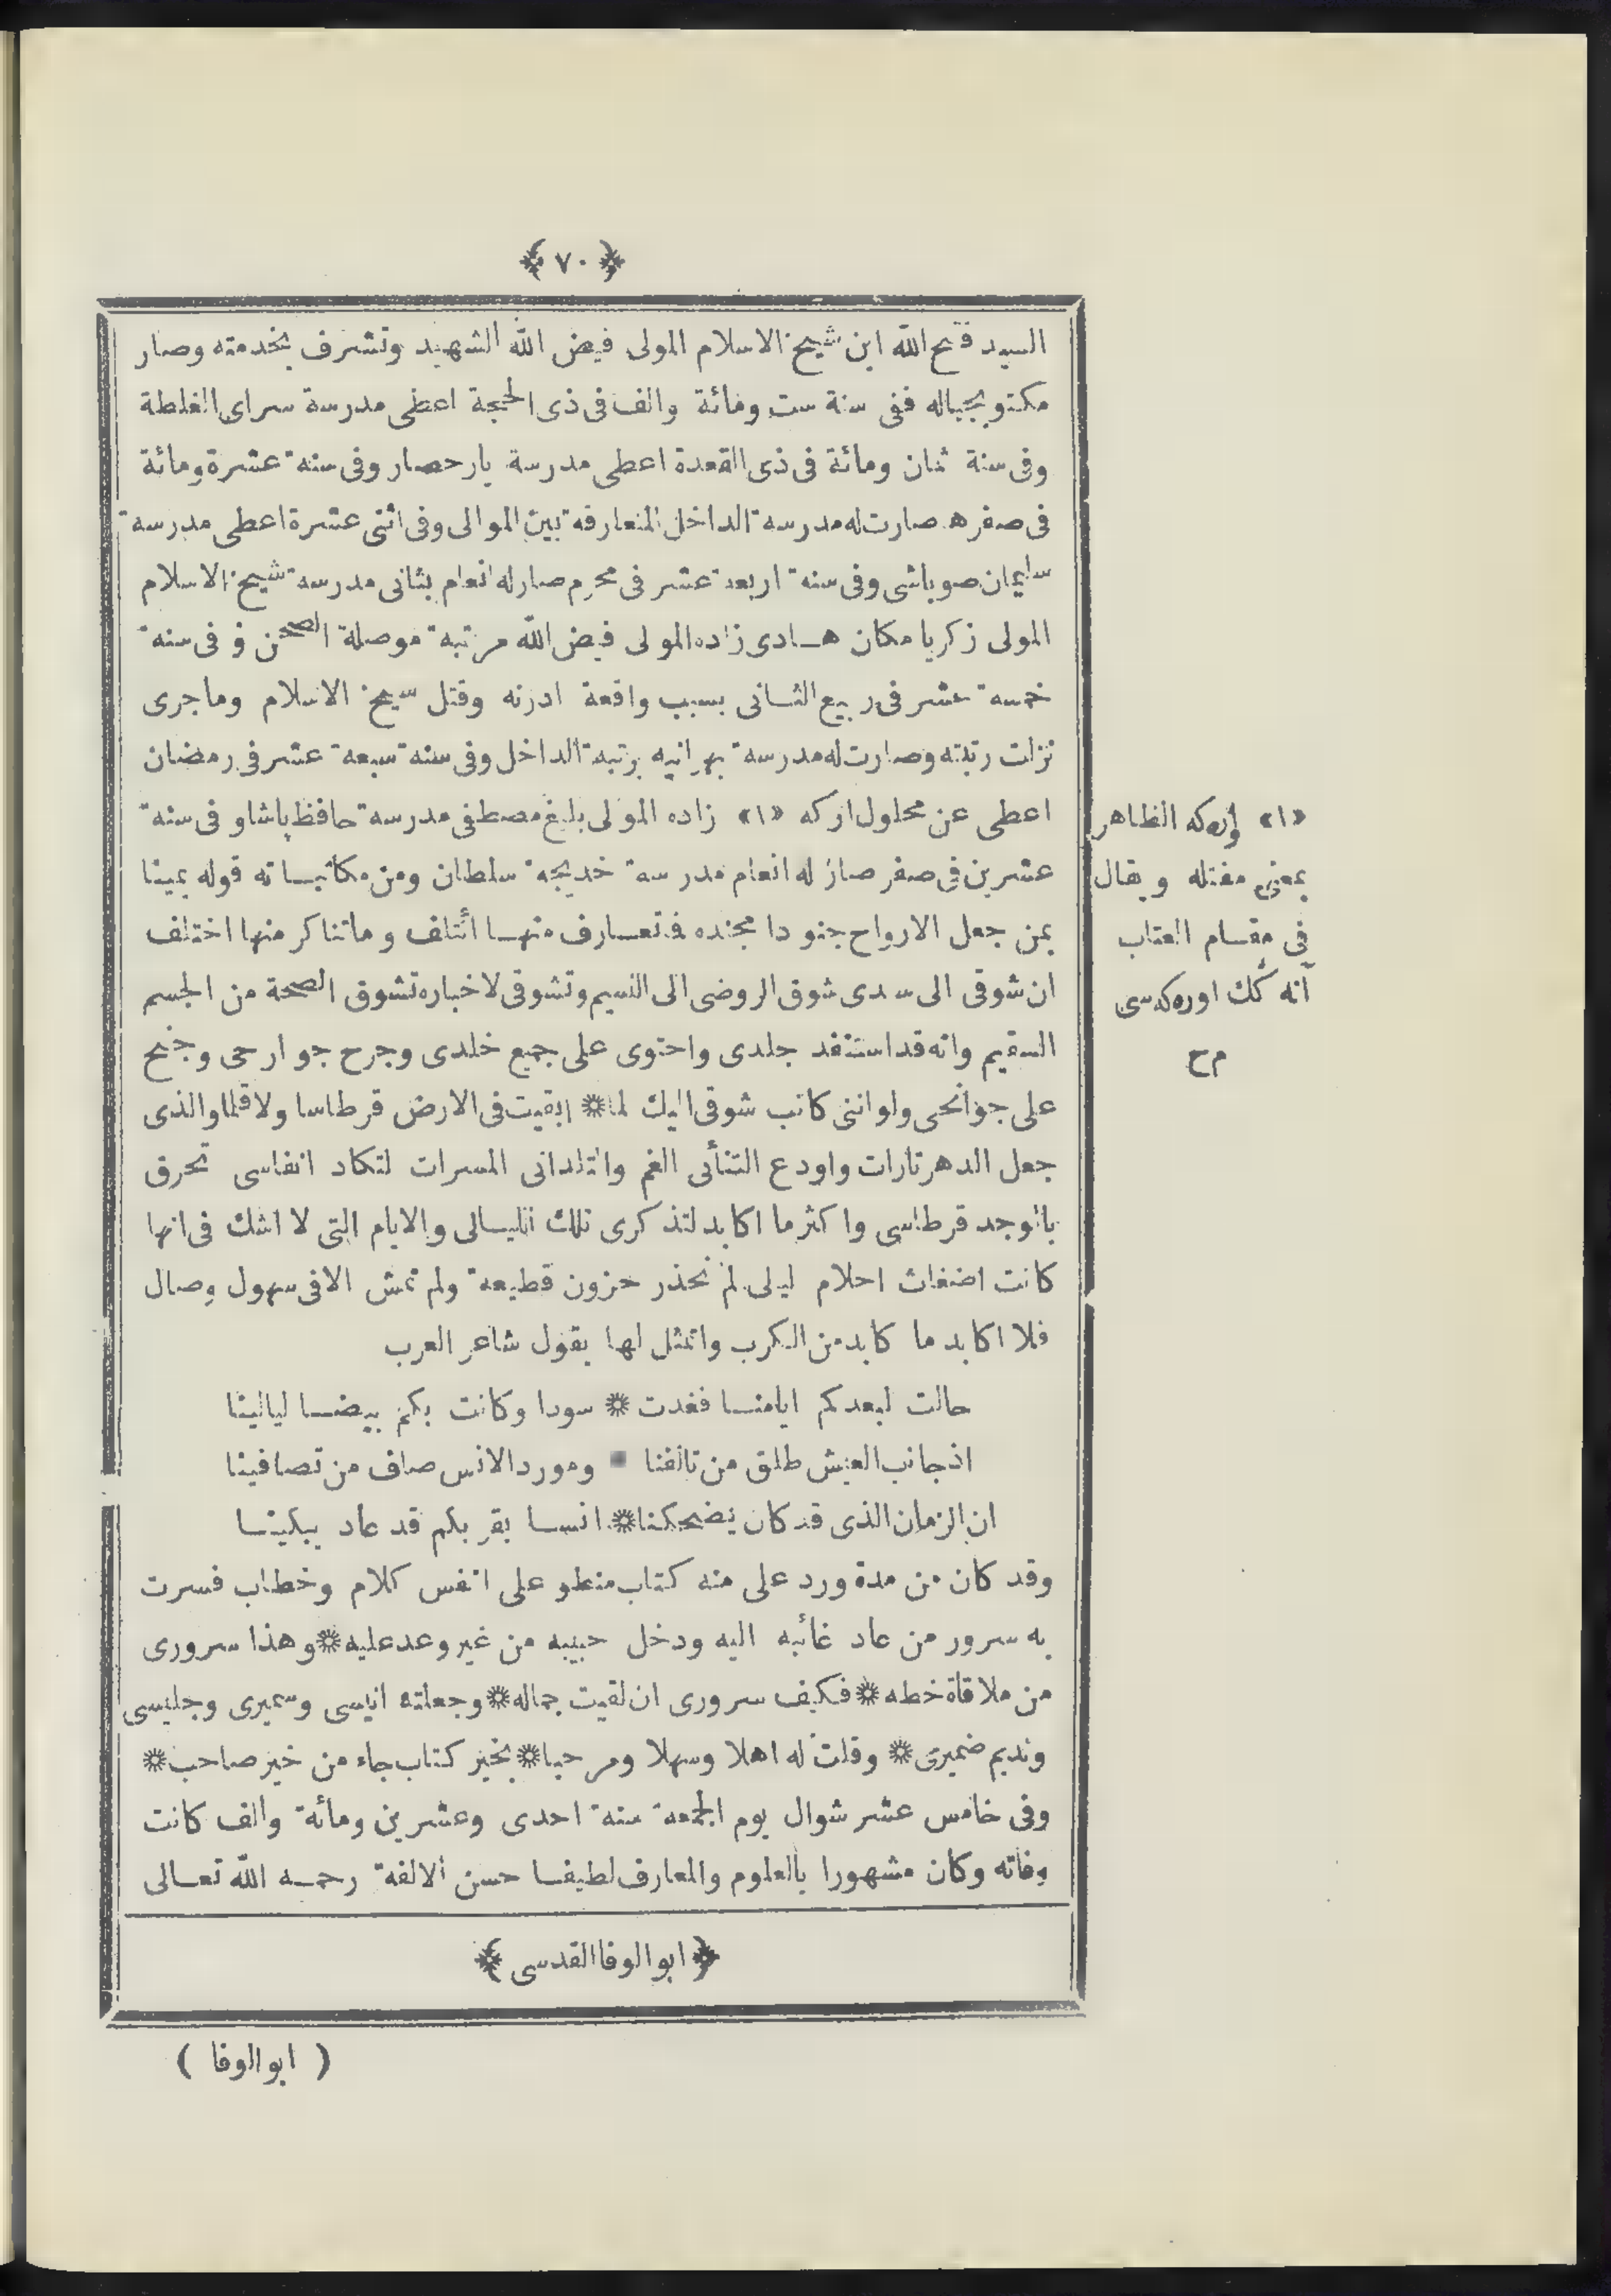 ﴿ ٧٠ ﴾
السيد فتح الله ابن شيخ الاسلام المولى فيض الله الشهيد وتشرف بخدمته وصار
مكتوبجياله ففى سنة ست ومائة والف فى ذى الحجة اعطى مدرسة سراى الغلطة
وفى سنة ثمان ومائة فى ذى القعدة اعطى مدرسة يارحصار وفى سنة عشرة ومائة
فى صفره صارت له مدرسة الداخل المتعارفة بين الموالى وفى اثنى عشرة اعطى مدرسة
سليمان صوباشى وفى سنة اربعة عشر فى محرم صار له انعام بثانى مدرسة شيخ الاسلام
المولى زكريا مكان هادى زاده المولى فيض الله مرتبة موصلة الصحن و فى سنة
خمسة عشر فى ربيع الثانى بسبب واقعة ادرنه وقتل شيخ الاسلام وماجرى
نزلت رتبته وصارت له مدرسة بهرانيه برتبة الداخل وفى سنة سبعة عشر فى رمضان
اعطى عن محلول اركه «١» زاده المولى بليغ مصطفى مدرسة حافظ پاشا و فى سنة
عشرين فى صفر صار له انعام مدرسة خديجة سلطان ومن مكاتباته قوله يمينا
بمن جعل الارواح جنودا مجنده فما تعارف منها ائتلف وماتناكر منها اختلف
ان شوقى الى سدى شوق الروضى الى النسيم وتشوقى لاخباره تشوق الصحة من الجسم
السقيم وانه قد استنفد جلدى واحتوى على جميع خلدى وجرح جوارحى وجنح
على جوانحى ولو اننى كاتب شوقى اليك لما ❊ ابقيت فى الارض قرطاسا ولا قلما والذى
جعل الدهر تارات واودع التنأى الغم والتدانى المسرات لتكاد انفاسى تحرق
بالوجد قرطاسى واكثر ما اكابد لتذكرى تلك الليالى والايام التى لا اشك فى انها
كانت اضغاث احلام ليلى لم تحذر حزون قطيعة ولم تمش الا فى سهول وصال
فلا اكابد ما كابد من الكرب واتمثل لها بقول شاعر العرب
حالت لبعدكم ايامنا فغدت ❊ سودا وكانت بكم بيضا ليالينا
اذ جانب العيش طلق من تالفنا ❊ ومورد الانس صاف من تصافينا
ان الزمان الذى قد كان يضحكنا ❊ انسا بقربكم قد عاد يبكينا
وقد كان من مدة ورد على منه كتاب منطو على انفس كلام وخطاب فسرت
به سرور من عاد غائبه اليه ودخل حبيبه من غير وعد عليه ❊ وهذا سرورى
من ملاقاة خطه ❊ فكيف سرورى ان لقيت جماله ❊ وجعلته انيسى وسميرى وجليسى
ونديم ضميرى ❊ وقلت له اهلا وسهلا ومرحبا ❊ بخير كتاب جاء من خير صاحب ❊
وفى خامس عشر شوال يوم الجمعة سنة احدى وعشرين ومائة والف كانت
وفاته وكان مشهورا بالعلوم والمعارف لطيفا حسن الالفة رحمه الله تعالى
﴿ ابو الوفا القدسى ﴾
( ابو الوفا )
«١» اوركه الظاهر
بمعنى مغتله ويقال
فى مقام العتاب
آنه كك اوره كه سى
م ح